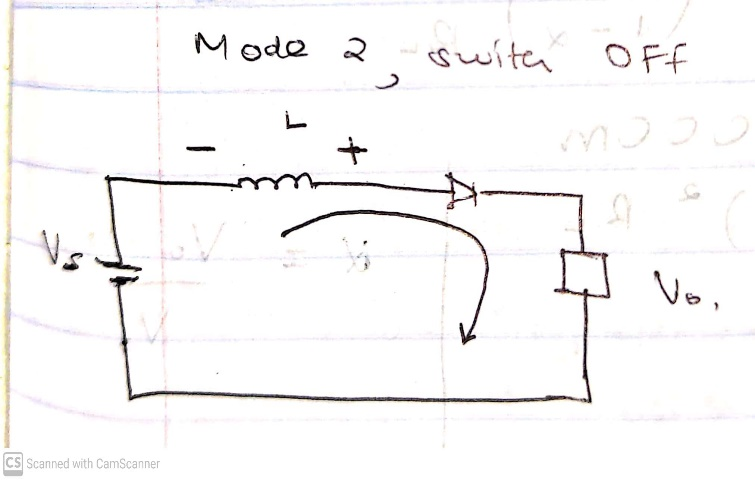 Mode 2, switch OFF
L
- +
Vs
Vo.
CS Scanned with CamScanner